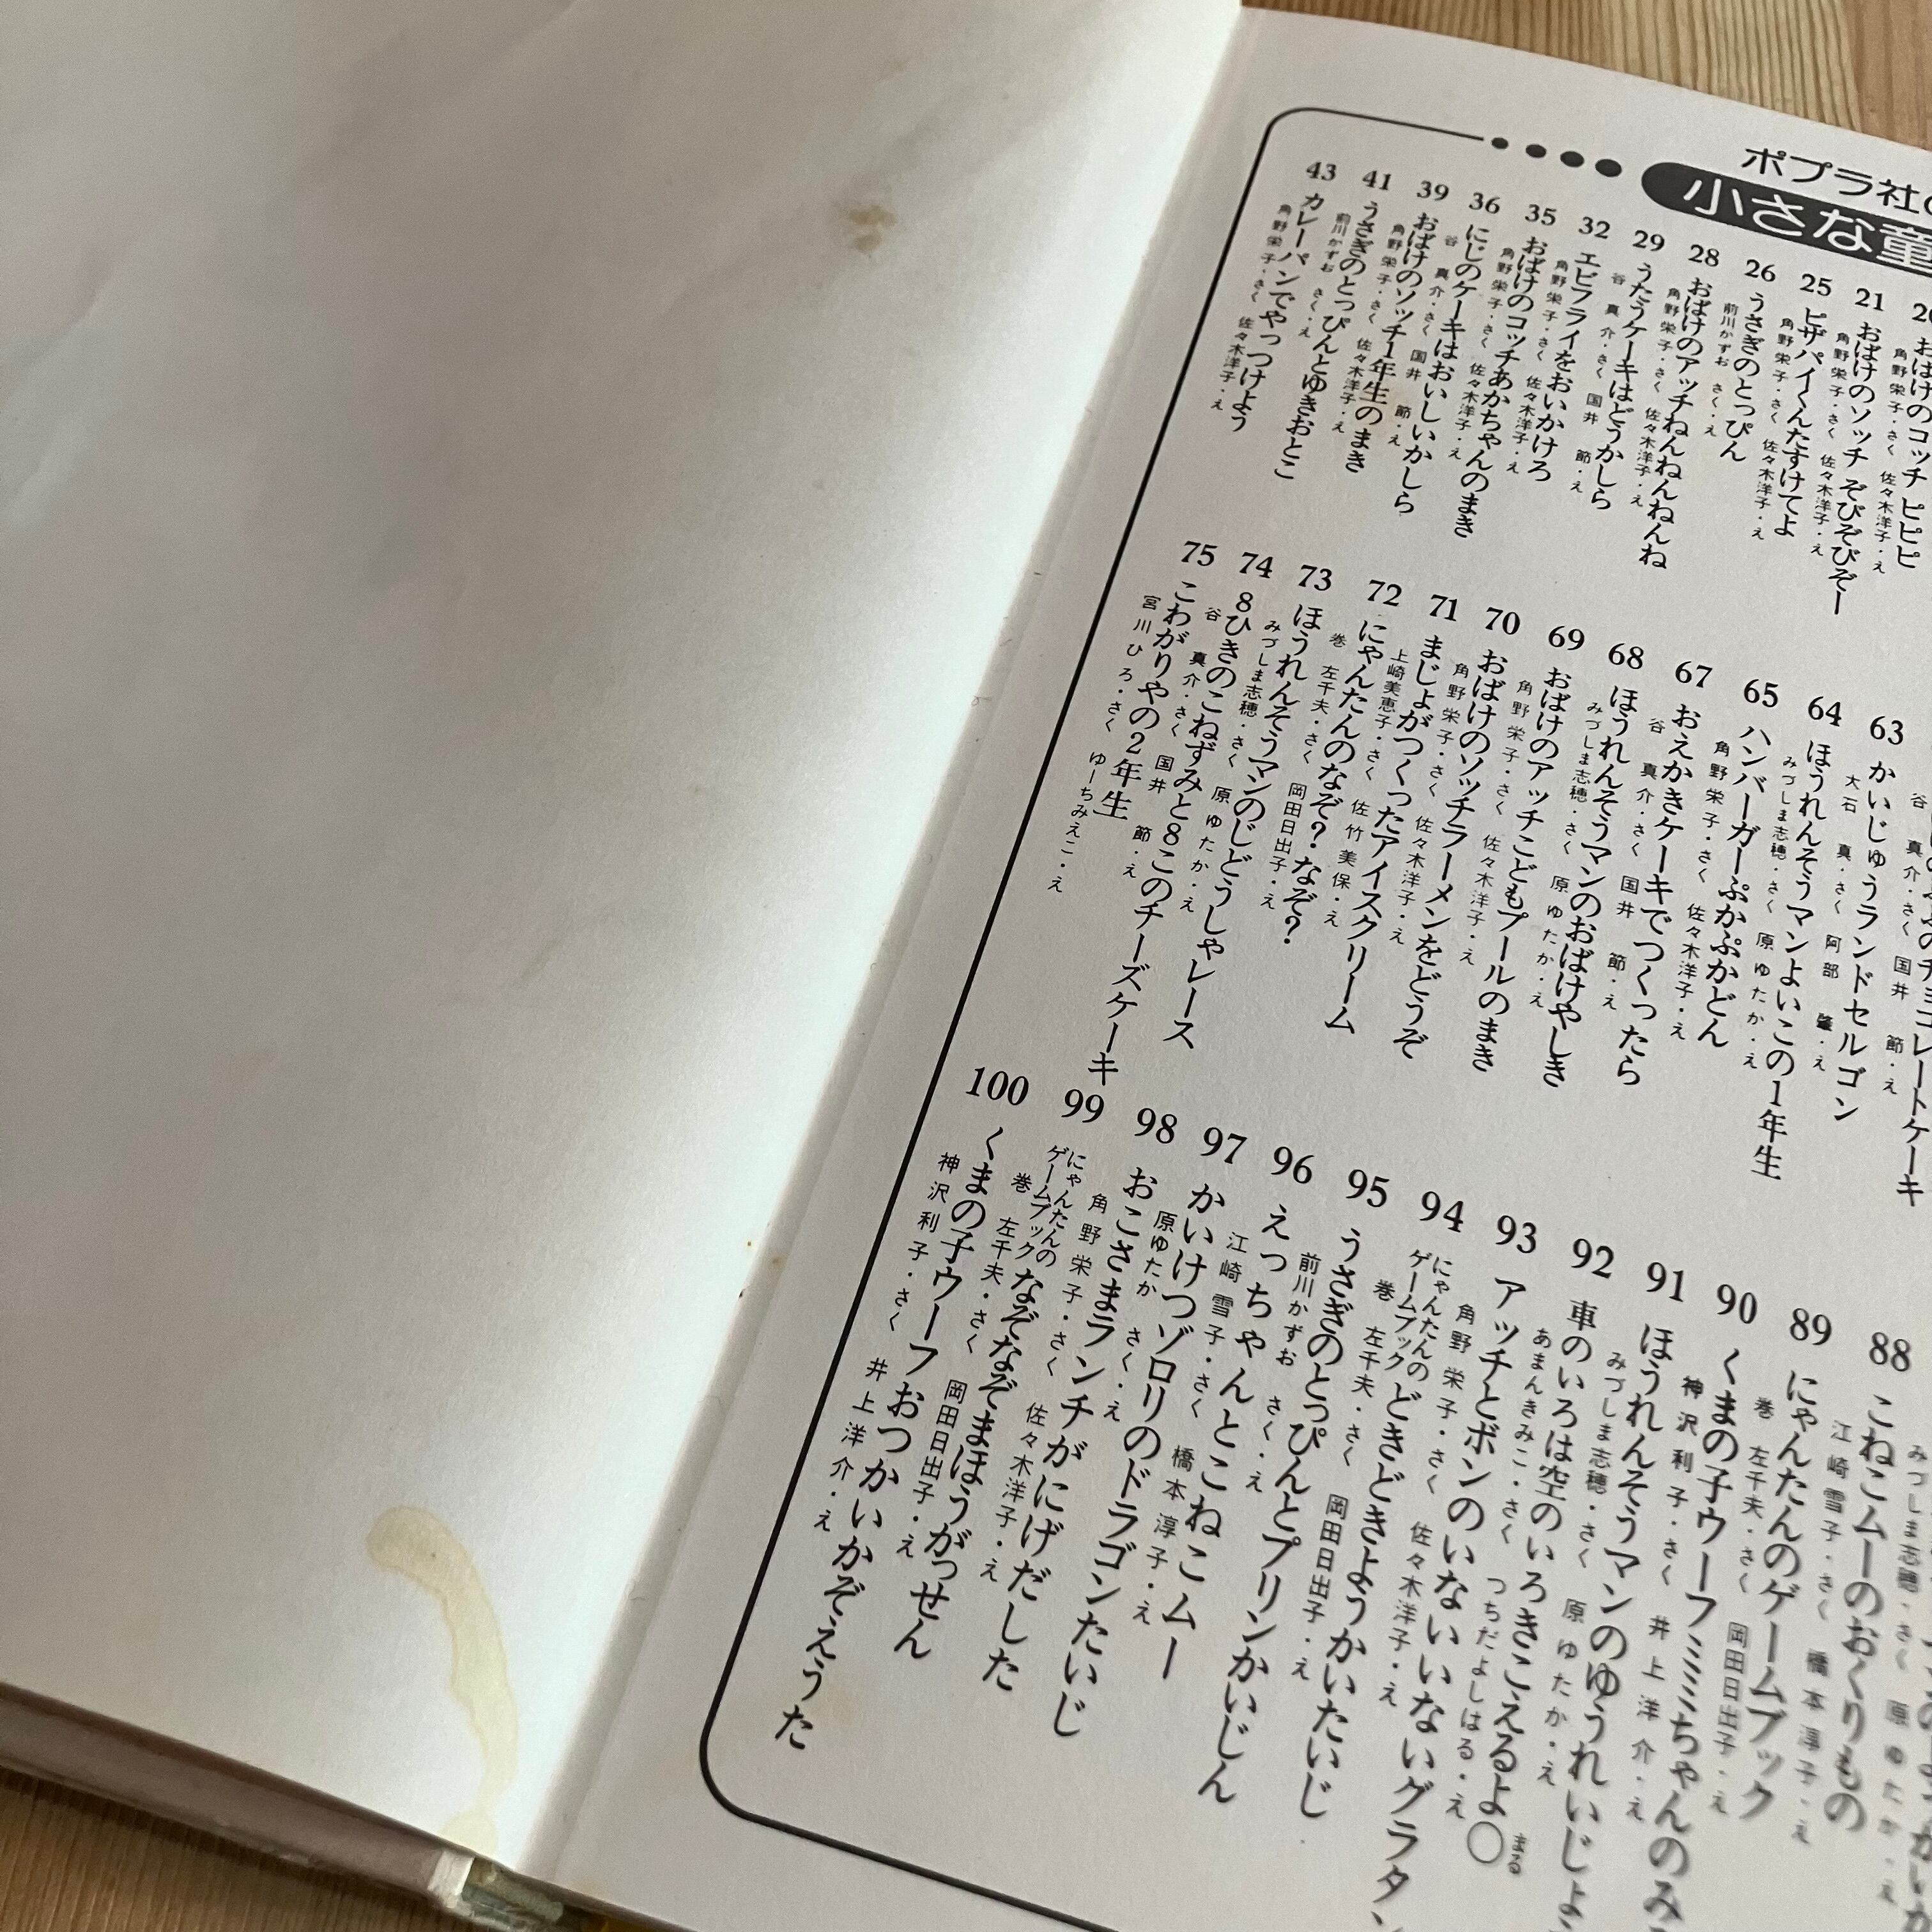 ポプラ社の
小さな童
おばけのコッチ ピピピ
角野栄子・さく 佐々木洋子・え
21 おばけのソッチ ぞびぞびぞー
角野栄子・さく 佐々木洋子・え
25 ピザパイくんたすけてよ
角野栄子・さく 佐々木洋子・え
26 うさぎのとっぴん
前川かずお さく・え
28 おばけのアッチねんねんねんね
角野栄子・さく 佐々木洋子・え
29 うたうケーキはどうかしら
谷 真介・さく 国井 節・え
32 エビフライをおいかけろ
角野栄子・さく 佐々木洋子・え
35 おばけのコッチあかちゃんのまき
角野栄子・さく 佐々木洋子・え
36 にじのケーキはおいしいかしら
谷 真介・さく 国井 節・え
39 おばけのソッチ1年生のまき
角野栄子・さく 佐々木洋子・え
41 うさぎのとっぴんとゆきおとこ
前川かずお さく・え
43 カレーパンでやっつけよう
角野栄子・さく 佐々木洋子・え
チョコレートケーキ
谷 真介・さく 国井 節・え
63 かいじゅうランドセルゴン
大石 真・さく 阿部 肇・え
64 ほうれんそうマンよいこの1年生
みづしま志穂・さく 原 ゆたか・え
65 ハンバーガーぷかぷかどん
角野栄子・さく 佐々木洋子・え
67 おえかきケーキでつくったら
谷 真介・さく 国井 節・え
68 ほうれんそうマンのおばけやしき
みづしま志穂・さく 原 ゆたか・え
69 おばけのアッチこどもプールのまき
角野栄子・さく 佐々木洋子・え
70 おばけのソッチラーメンをどうぞ
角野栄子・さく 佐々木洋子・え
71 まじょがつくったアイスクリーム
上崎美恵子・さく 佐竹美保・え
72 にゃんたんのなぞ?なぞ?
巻 左千夫・さく 岡田日出子・え
73 ほうれんそうマンのじどうしゃレース
みづしま志穂・さく 原 ゆたか・え
74 8ひきのこねずみと8このチーズケーキ
谷 真介・さく 国井 節・え
75 こわがりやの2年生
宮川ひろ・さく ゆーちみえこ・え
みづしま志穂・さく 原 ゆたか・え
88 こねこムーのおくりもの
江崎雪子・さく 橋本淳子・え
89 にゃんたんのゲームブック
巻 左千夫・さく 岡田日出子・え
90 くまの子ウーフミミちゃんのみ
神沢利子・さく 井上洋介・え
91 ほうれんそうマンのゆうれいじょ
みづしま志穂・さく 原 ゆたか・え
92 車のいろは空のいろきこえるよ〇
まる
あまんきみこ・さく つちだよしはる・え
93 アッチとボンのいないいないグラタン
角野栄子・さく 佐々木洋子・え
94 にゃんたんのゲームブックどきどきようかいたいじ
巻 左千夫・さく 岡田日出子・え
95 うさぎのとっぴんとプリンかいじん
前川かずお さく・え
96 えっちゃんとこねこムー
江崎雪子・さく 橋本淳子・え
97 かいけつゾロリのドラゴンたいじ
原ゆたか さく・え
98 おこさまランチがにげだした
角野栄子・さく 佐々木洋子・え
99 にゃんたんのゲームブックなぞなぞまほうがっせん
巻 左千夫・さく 岡田日出子・え
100 くまの子ウーフおつかいかぞえうた
神沢利子・さく 井上洋介・え